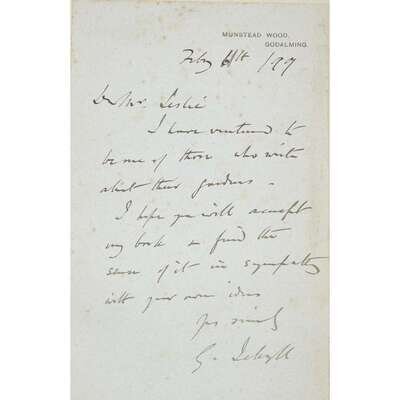 MUNSTEAD WOOD,
GODALMING.
Feby 11th /99
Dr Mr. Leslie
I have ventured to
be one of those who write
about their gardens -
I hope you will accept
my book & find the
sense of it in sympathy
with your own ideas
yrs sincely
G. Jekyll